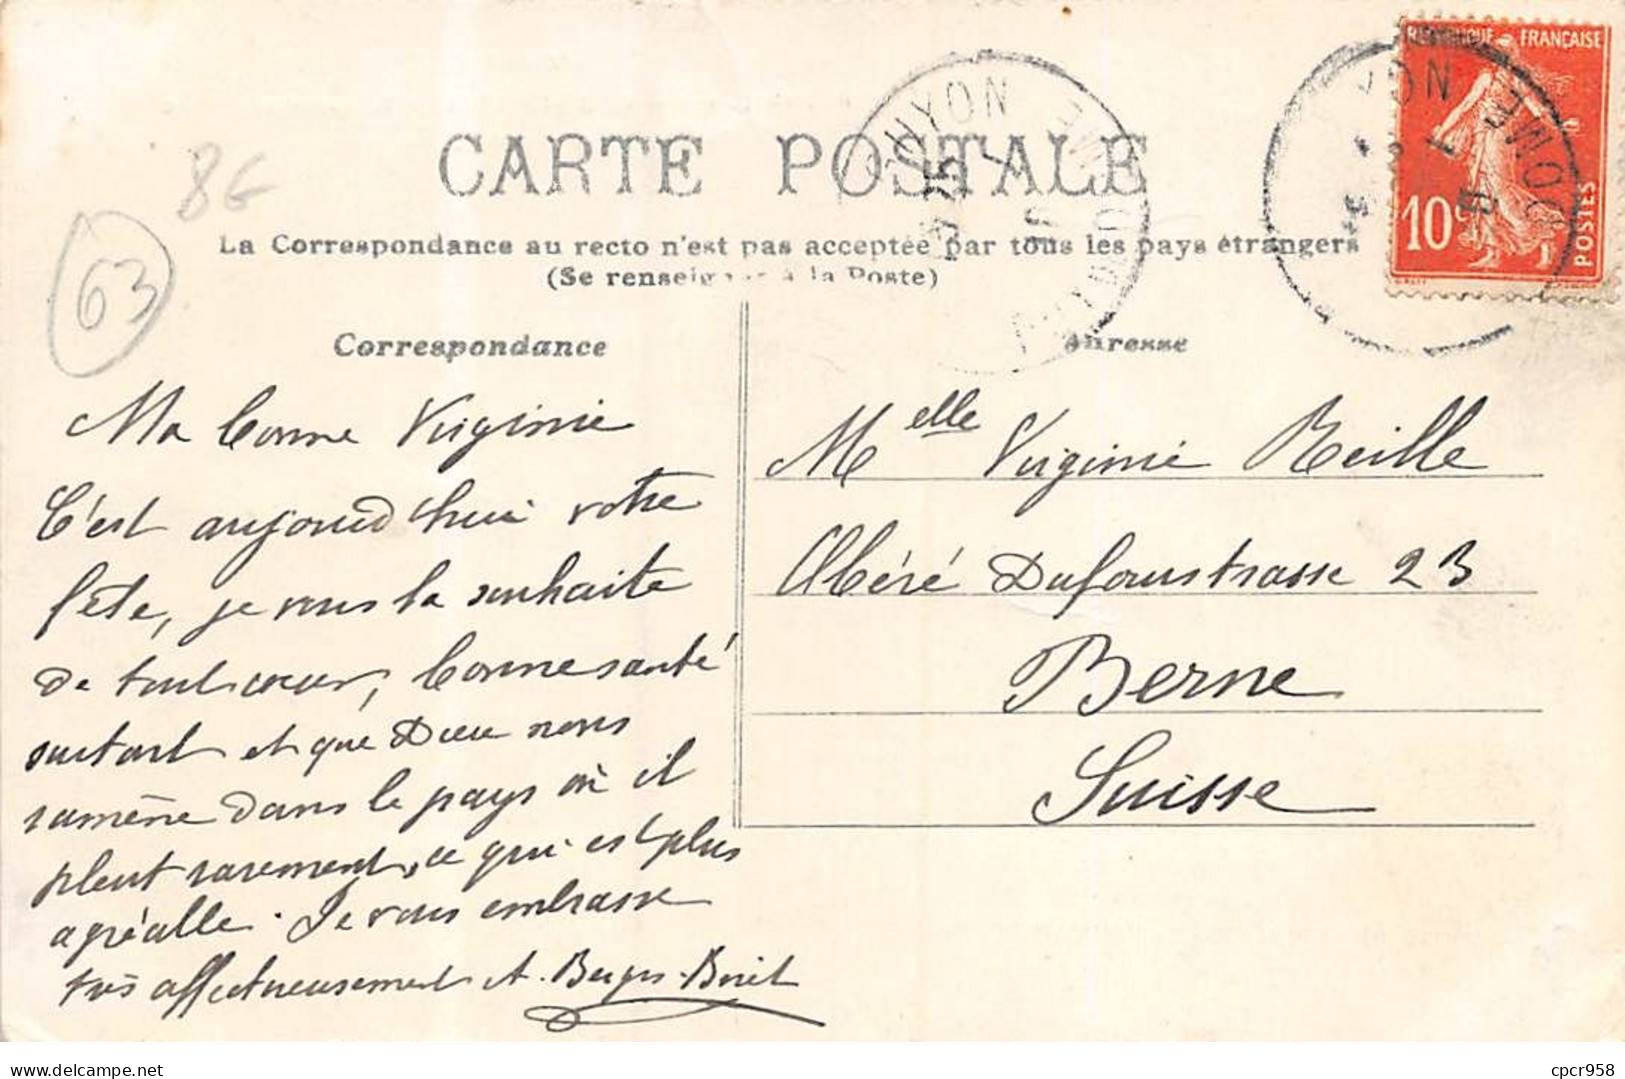 RÉPUBLIQUE FRANÇAISE
10c
POSTES
CARTE POSTALE
8G
63
La Correspondance au recto n'est pas acceptée par tous les pays étrangers
(Se renseigner à la Poste)
Correspondance
Ma bonne Virginie
C'est aujourd'hui votre
fête, je vous la souhaite
de tout cœur, bonne santé
surtout et que Dieu vous
ramène dans le pays où il
pleut rarement, ce qui est plus
agréable. Je vous embrasse
très affectueusement
Adresse
Melle Virginie Reille
Dufourstrasse 23
Berne
Suisse
cpcr958